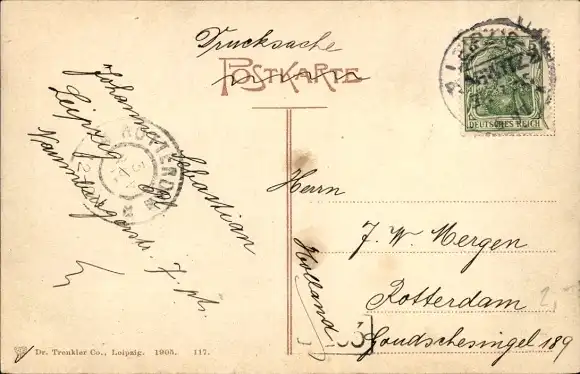 Drucksache
POSTKARTE
LEIPZIG
DEUTSCHES REICH
ROTTERDAM
Johannes Sebastian
Leipzig
7. pt.
Herrn
J. W. Mergen
Rotterdam
Goudschesingel 189
Holland
Dr. Trenkler Co., Leipzig. 1905. 117.